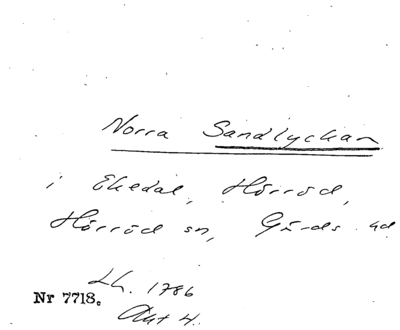 Norra Sandlyckan
i Ekedal, Hörröd,
Hörröd sn, Gärds hd
Lh. 1786
Akt 4.
Nr 7718.